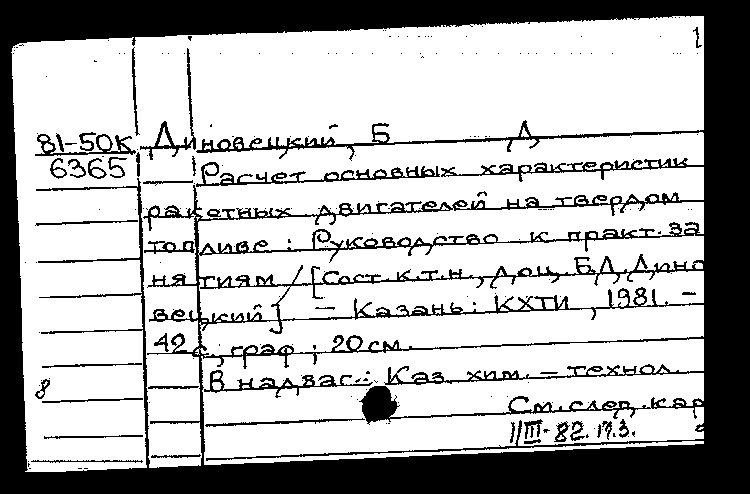 1
81-50К Диновецкий, Б Д
6365 Расчет основных характеристик
ракетных двигателей на твердом
топливе : Руководство к практ. за
нятиям / [Сост. к.т.н., доц. Б.Д. Дино
вецкий] — Казань : КХТИ, 1981. —
42 с., граф ; 20 см.
8 В надзаг.: Каз. хим. – технол.
См. след. кар
1/III-82. 17.3.